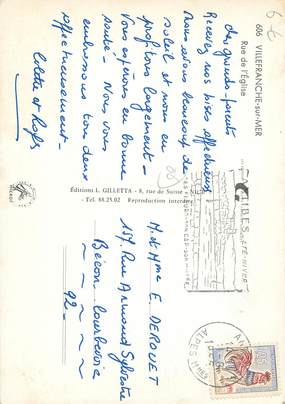 606 VILLEFRANCHE-sur-MER
Rue de l'Église
Chers grands-parents
Recevez nos bises affectueuses
Nous avons beaucoup de
soleil et nous en
profitons largement.
Vous espérons en bonne
santé. Nous vous
embrassons tous deux
affectueusement.
Colette et
Éditions L. GILLETTA - 8, rue de Suisse - NICE
- Tél. 88.25.02 Reproduction interdite
ANTIBES
ÉTÉ-HIVER
ALPES MMES
M. et Mme E. DEROUET
157 Rue Armand Sylvestre
Bécon. Courbevoie
92